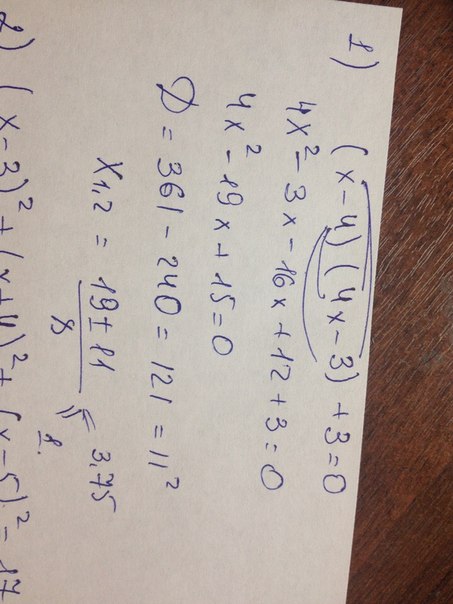 1) (x-4)(4x-3)+3=0
4x²-3x-16x+12+3=0
4x²-19x+15=0
D = 361-240=121=11²
x₁,₂ = (19±11)/8 = 3,75
1.
2) (x-3)²+(x+4)²+(x-5)²=17